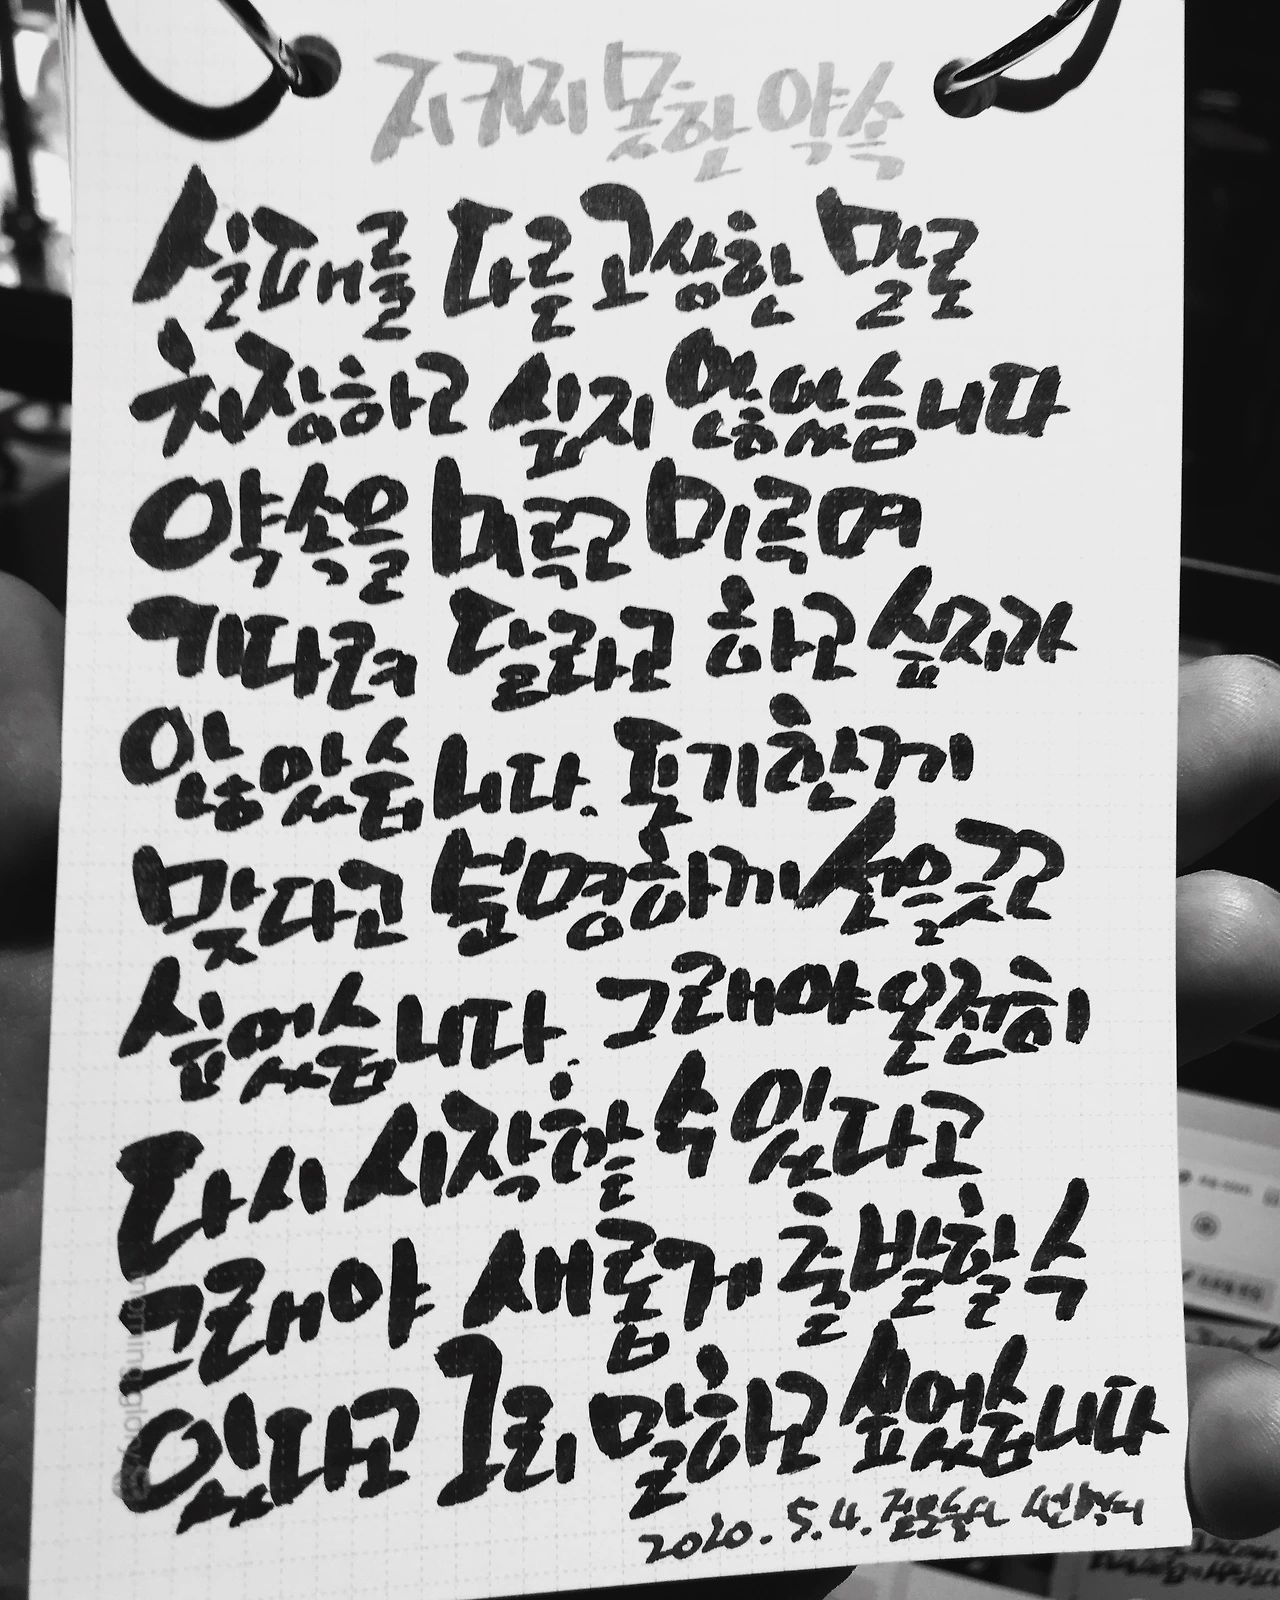 지키지 못한 약속
실패를 다를 고상한 말로
치장하고 싶지 않았습니다
약속을 미루고 미루며
기다려 달라고 하고 싶지가
않았습니다. 포기한게
맞다고 분명하게 선을 긋고
싶었습니다. 그래야 온전히
다시 시작할 수 있다고
그래야 새롭게 출발할 수
있다고 그리 말하고 싶었습니다
2020. 5. 4.
morning glory